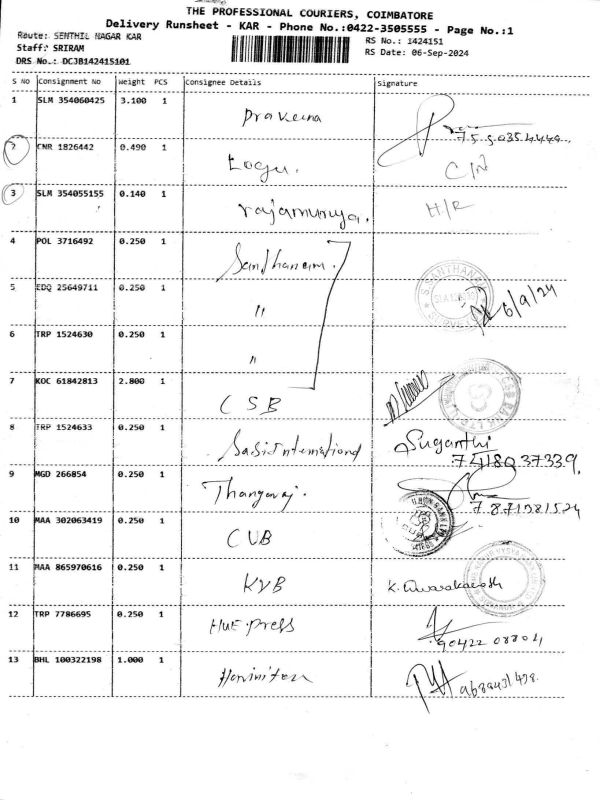 THE PROFESSIONAL COURIERS, COIMBATORE
Delivery Runsheet - KAR - Phone No.:0422-3505555 - Page No.:1
Route: SENTHIL NAGAR KAR
Staff: SRIRAM
DRS No.: DC3B142415101
RS No.: 1424151
RS Date: 06-Sep-2024
S No Consignment No Weight PCS Consignee Details Signature
1 SLM 354060425 3.100 1 Praveena
2 CNR 1826442 0.490 1 Logu. C/N
3 SLM 354055155 0.140 1 H/R
4 POL 3716492 0.250 1 Sandhanam.
5 EDQ 25649711 0.250 1 " 6/9/24
6 TRP 1524630 0.250 1 "
7 KOC 61842813 2.800 1 CSB
8 TRP 1524633 0.250 1 Sasi International Suganthi
7418037339.
9 MGD 266854 0.250 1 Thangaraj.
7.871381524
10 MAA 302063419 0.250 1 CUB
11 MAA 865970616 0.250 1 KVB
12 TRP 7786695 0.250 1 HUE Press
13 BHL 100322198 1.000 1